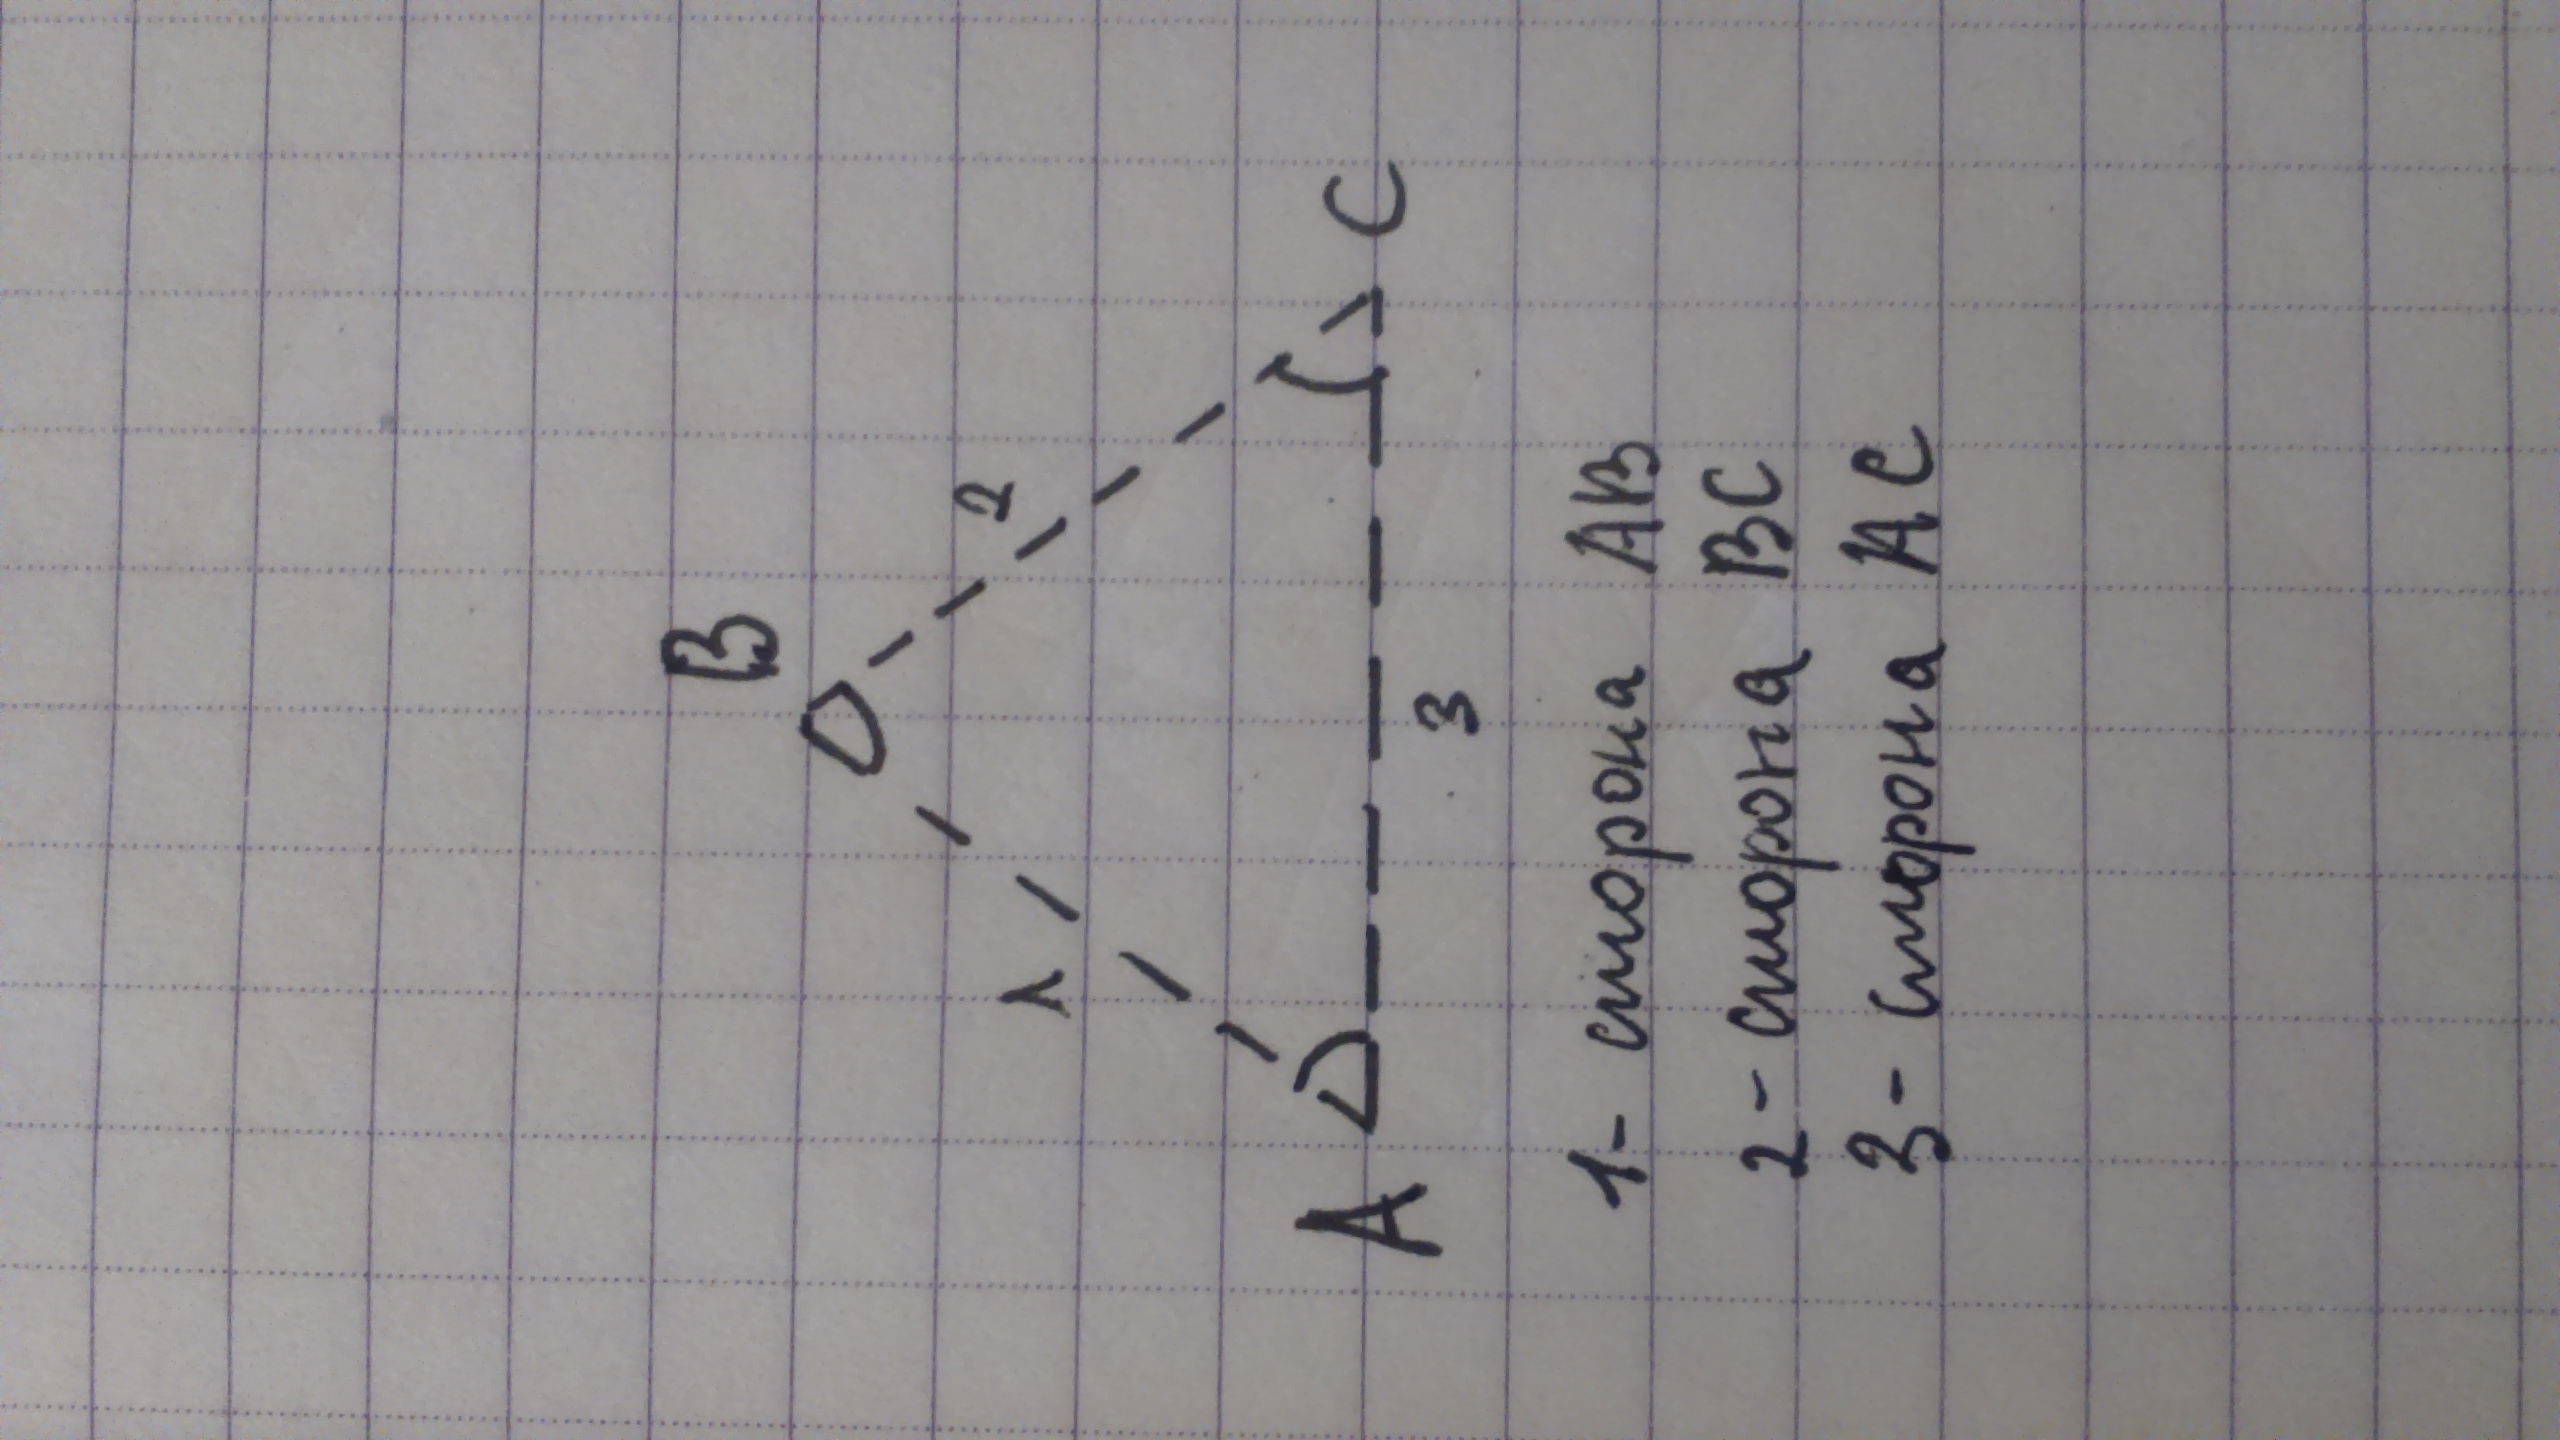 B
1
2
A
C
3
1- сторона AB
2- сторона BC
3- сторона AC